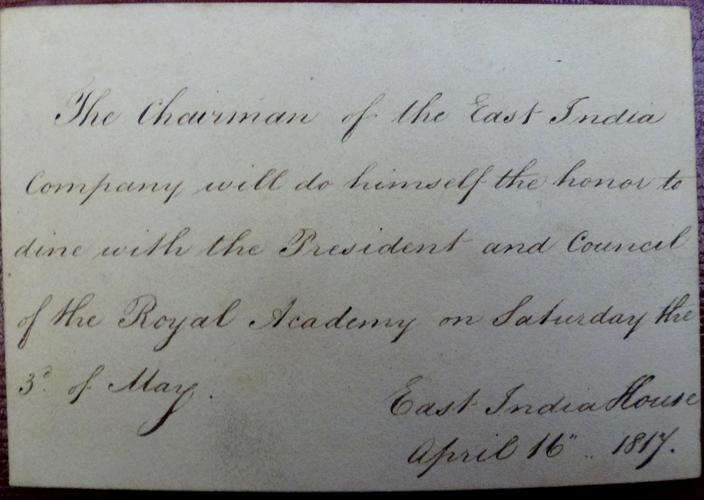 The Chairman of the East India
Company will do himself the honor to
dine with the President and Council
of the Royal Academy on Saturday the
3d. of May.
East India House
April 16" .. 1817.